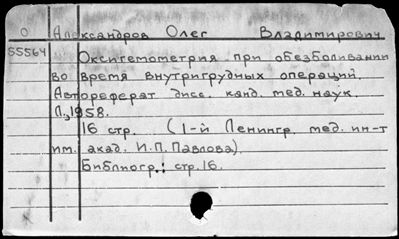 О Александров Олег Владимирович
55564 Оксигемометрия при обезболивании
во время внутригрудных операций.
Автореферат дисс. канд. мед. наук.
Л., 1958.
16 стр. (1-й Ленингр. мед. ин-т
им. акад. И.П.Павлова).
Библиогр.: стр.16.